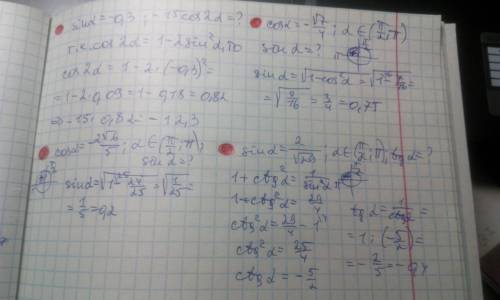 sinα = -0,3 ; -15cos2α = ?
т.к. cos2α = 1-2sin²α, то
cos2α = 1-2·(-0,3)² =
= 1-2·0,09 = 1-0,18 = 0,82
⇒ -15·0,82 = -12,3
cosα = -√7/4 ; α∈(π/2; π)
sinα = ?
sinα = √1-cos²α = √1-7/16 =
= √9/16 = 3/4 = 0,75
cosα = -2√6/5 ; α∈(π/2; π)
sinα = ?
sinα = √1-24/25 = √1/25 =
= 1/5 = 0,2
sinα = 2/√29 ; α∈(π/2; π), tgα = ?
1+ctg²α = 1/sin²α
1+ctg²α = 29/4
ctg²α = 29/4 - 1
ctg²α = 25/4
ctgα = -5/2
tgα = 1/ctgα =
= 1 : (-5/2) =
= -2/5 = -0,4